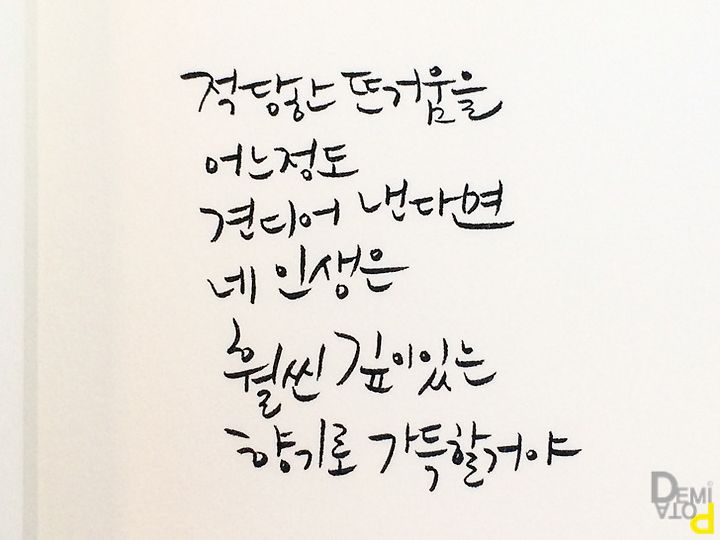 적당한 뜨거움을
어느정도
견디어 낸다면
네 인생은
훨씬 깊이있는
향기로 가득할거야
DEMI
POTA